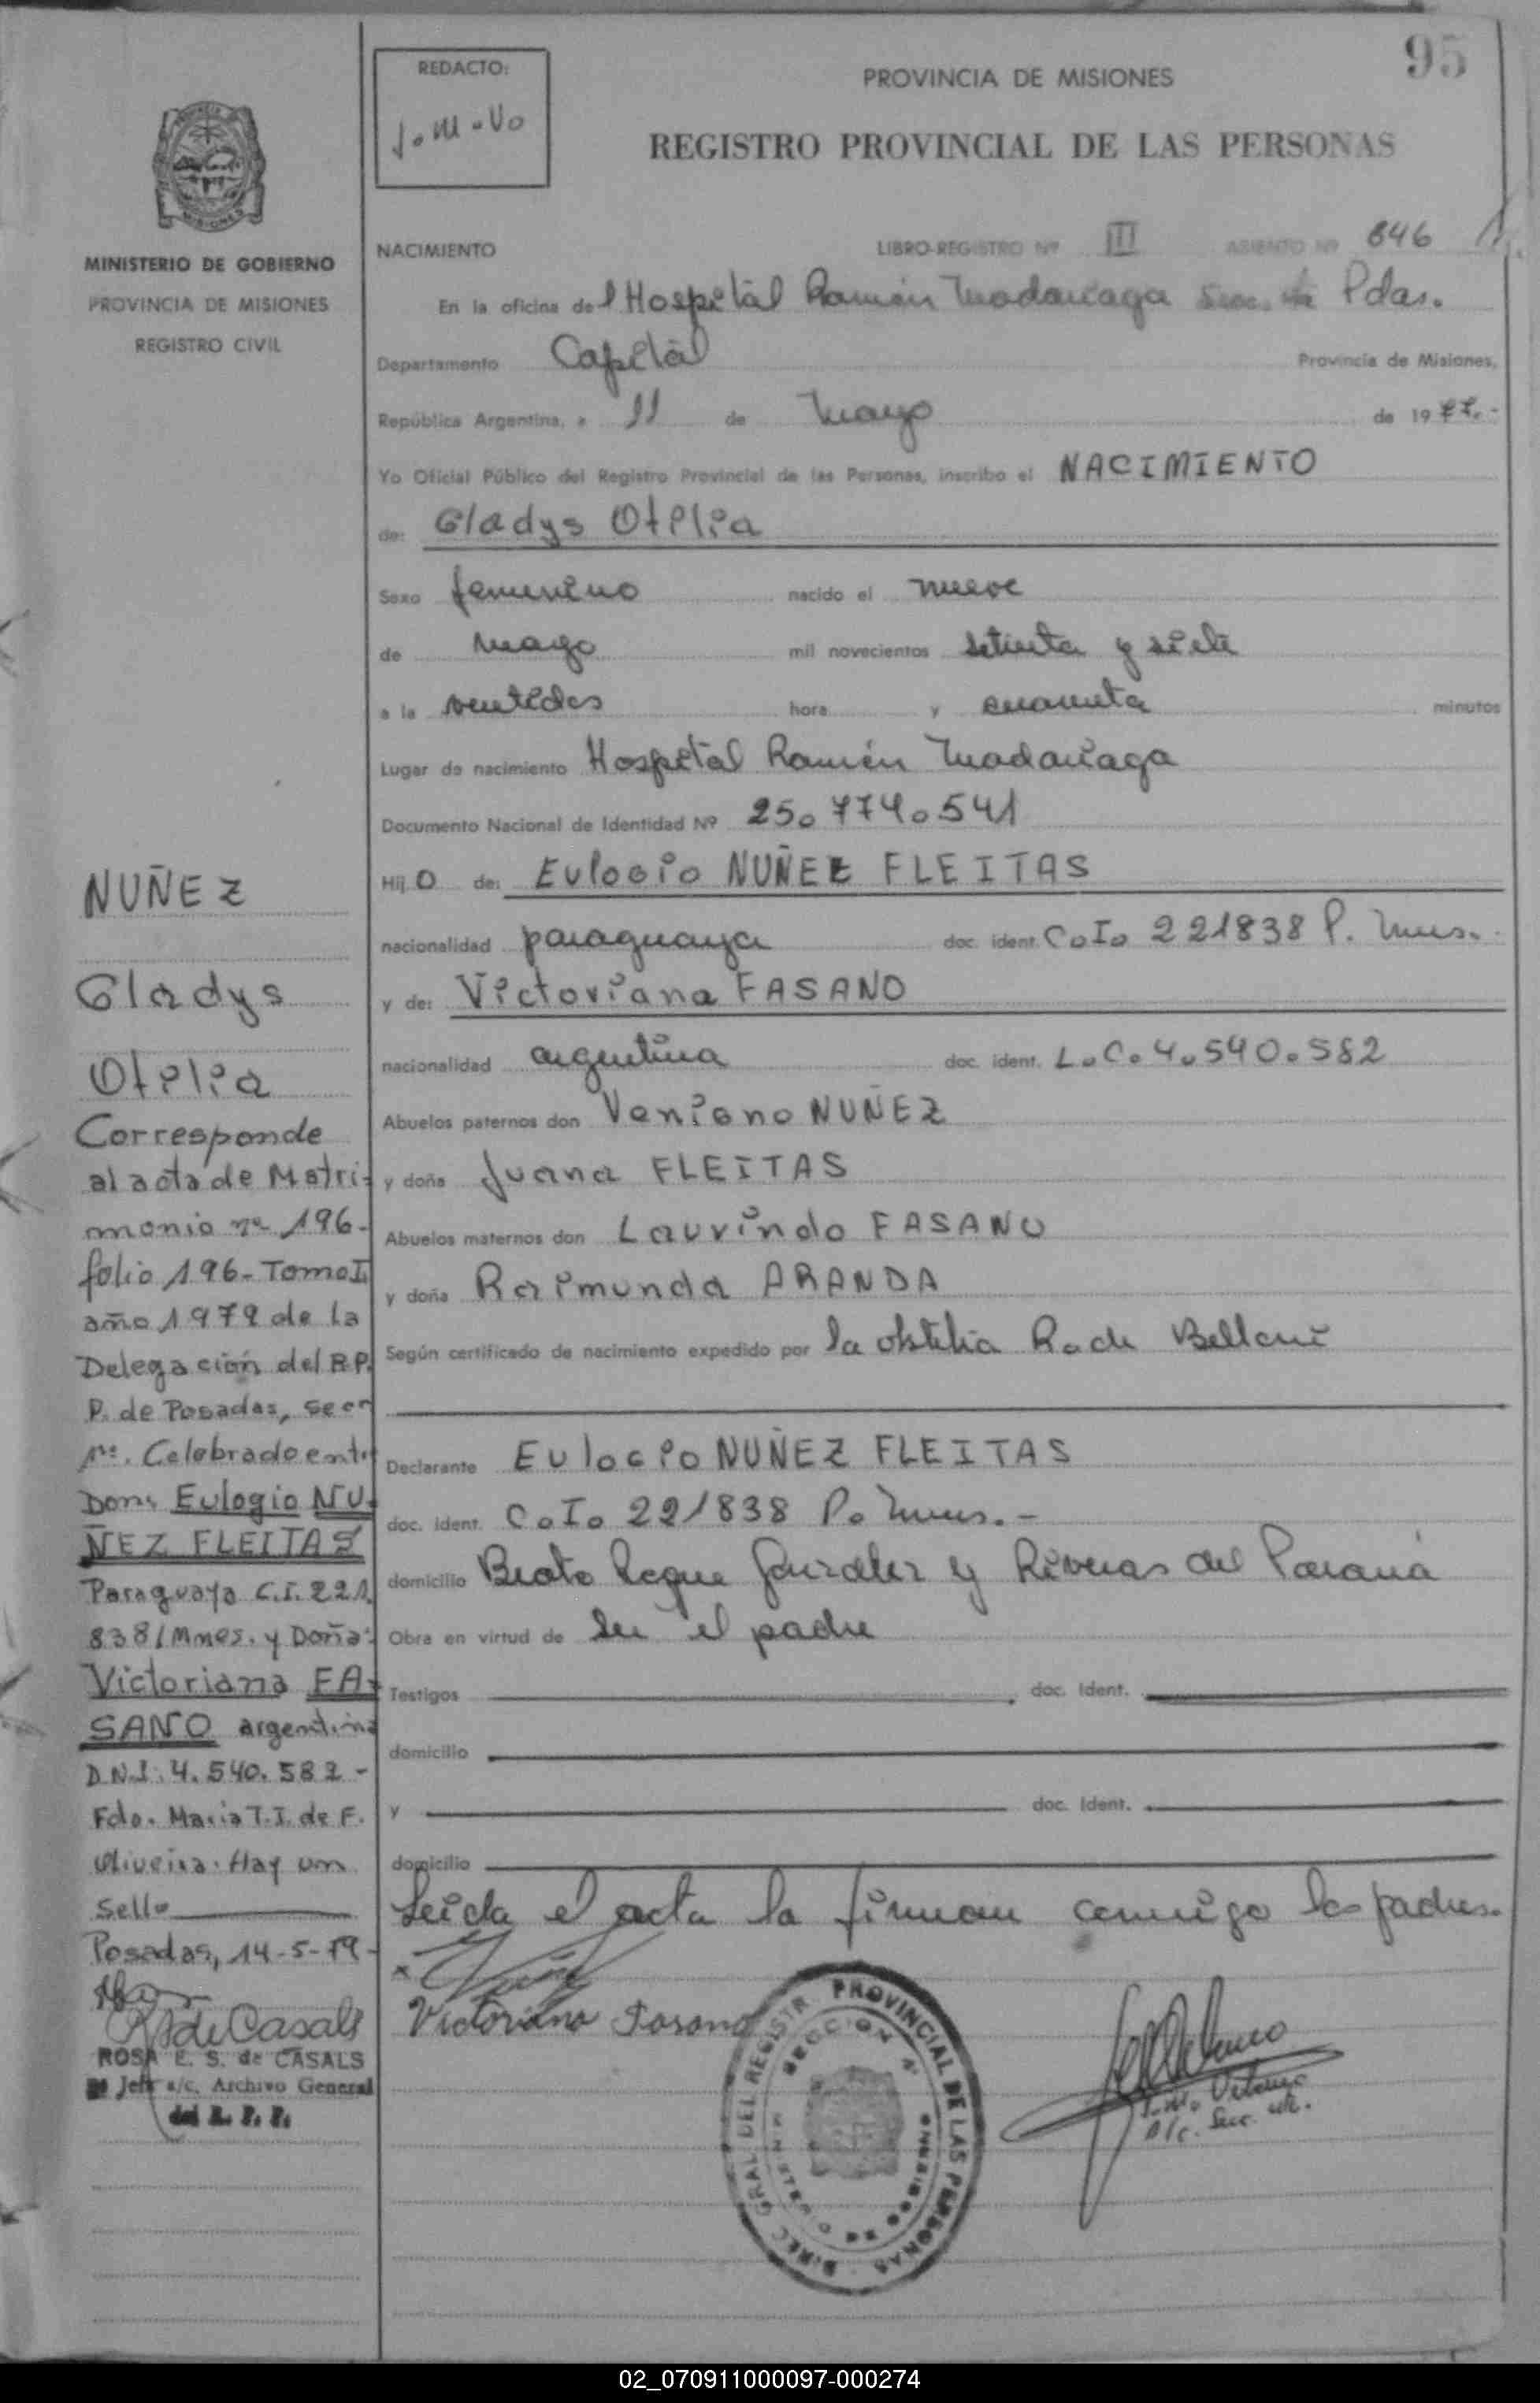 95
REDACTO:
J.M.Vo
PROVINCIA DE MISIONES
REGISTRO PROVINCIAL DE LAS PERSONAS
MISIONES
MINISTERIO DE GOBIERNO
PROVINCIA DE MISIONES
REGISTRO CIVIL
NACIMIENTO LIBRO-REGISTRO Nº III ASIENTO Nº 646
En la oficina del Hospital Ramón Madariaga Pdas.
Departamento Capital Provincia de Misiones,
República Argentina, a 11 de Mayo de 1977.-
Yo Oficial Público del Registro Provincial de las Personas, inscribo el NACIMIENTO
de: Gladys Otilia
Sexo femenino nacido el nueve
de mayo mil novecientos setenta y siete
a la ventidos hora y cuarenta minutos
Lugar de nacimiento Hospital Ramón Madariaga
Documento Nacional de Identidad Nº 25.774.541
Hij O de: Eulogio NUÑEZ FLEITAS
nacionalidad paraguaya doc. ident. C.I. 221838 P. Mnes.
y de: Victoriana FASANO
nacionalidad argentina doc. ident. L.C. 4.540.582
Abuelos paternos don Veniano NUÑEZ
y doña Juana FLEITAS
Abuelos maternos don Laurindo FASANO
y doña Raimunda ARANDA
Según certificado de nacimiento expedido por la obstetra R. de Belloni
Declarante Eulogio NUÑEZ FLEITAS
doc. ident. C.I. 221838 P. Mnes.-
domicilio Beato Roque González y Riveras del Paraná
Obra en virtud de ser el padre
Testigos doc. Ident.
domicilio
y doc. Ident.
domicilio
Leida el acta la firman conmigo los padres.
Victoriana Fasano
DIREC. GRAL. DEL REGISTR. PROVINCIAL DE LAS PERSONAS
SECCION
MINISTERIO DE GOBIERNO
a/c. Secc.
NUÑEZ
Gladys
Otilia
Corresponde
al acta de Matri-
monio nº 196-
folio 196- Tomo I
año 1979 de la
Delegación del R.P.
P. de Posadas, Secc
1ª. Celebrado entre
Don: Eulogio NU-
ÑEZ FLEITAS
Paraguaya C.I. 221.
838/Mnes. y Doña:
Victoriana FA-
SANO argentina
D.N.I. 4.540.582 -
Fdo. Maria T.I. de F.
Oliveira. Hay un
sello
Posadas, 14-5-79-
R S de Casals
ROSA E. S. de CASALS
Jefe a/c. Archivo General
del R. P. P.
02_070911000097-000274